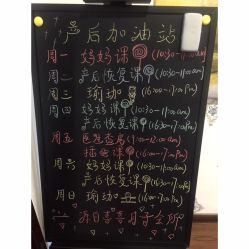 产后加油站
周一 妈妈课 (10:30-11:00am)
周二 产后恢复课 (10:30-11:00am)
周三 瑜珈 (16:00-17:00PM)
周四 妈妈课 (10:30-11:00am)
产后恢复课 (16:00-17:00PM)
周五 医生查房 (9:00-12:00am)
插画课 (16:00-17:00PM)
周六 妈妈课 (10:30-11:00am)
产后恢复课 (16:00-17:00PM)
周日 瑜珈 (16:00-17:00PM)
喜喜月子会所